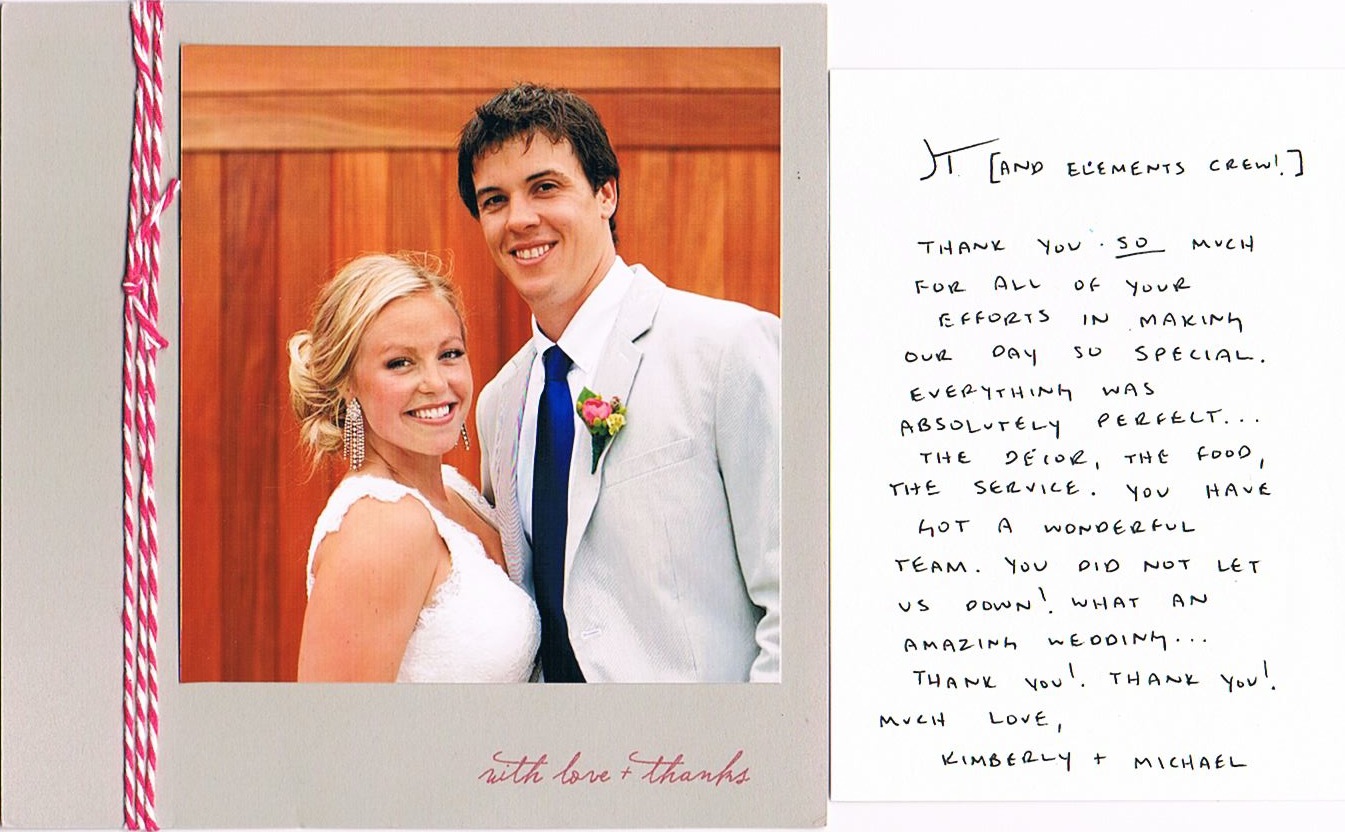 with love + thanks
JT [AND ELEMENTS CREW!]
THANK YOU SO MUCH
FOR ALL OF YOUR
EFFORTS IN MAKING
OUR DAY SO SPECIAL.
EVERYTHING WAS
ABSOLUTELY PERFECT...
THE DÉCOR, THE FOOD,
THE SERVICE. YOU HAVE
GOT A WONDERFUL
TEAM. YOU DID NOT LET
US DOWN! WHAT AN
AMAZING WEDDING...
THANK YOU! THANK YOU!
MUCH LOVE,
KIMBERLY + MICHAEL